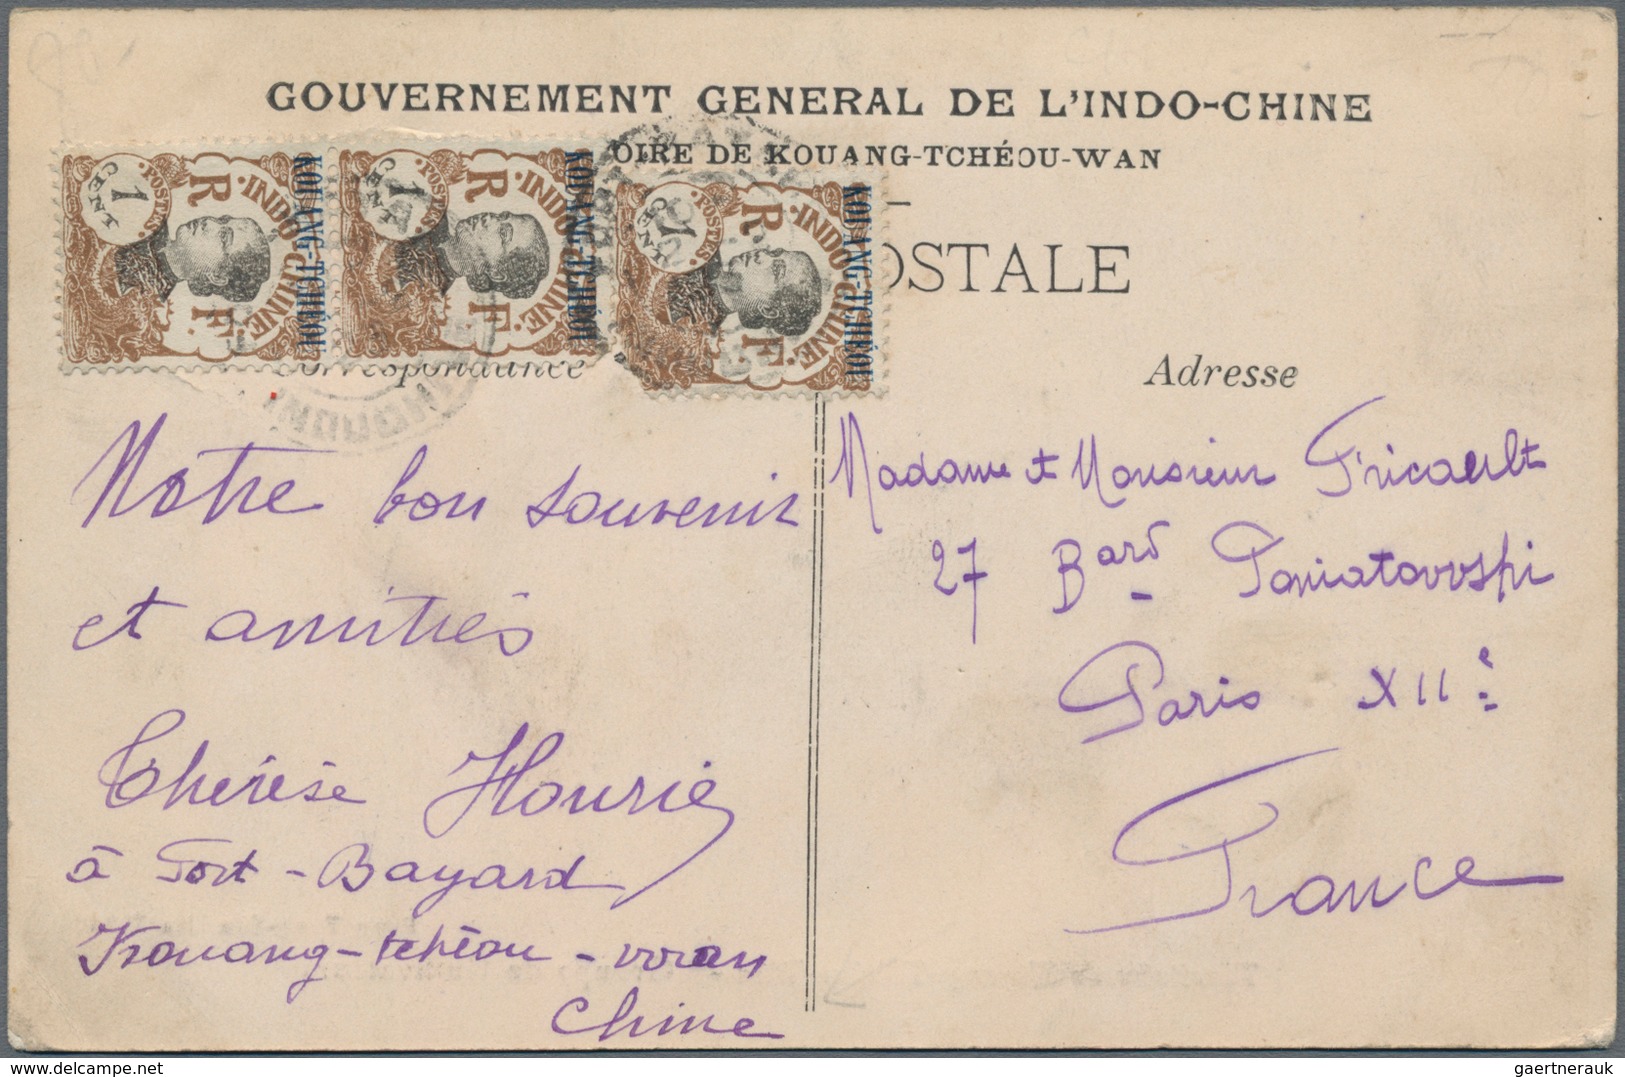 GOUVERNEMENT GENERAL DE L'INDO-CHINE
OIRE DE KOUANG-TCHÉOU-WAN
OSTALE
1 CENT POSTES R F INDO-CHINE KOUANG-TCHÉOU
1 CENT POSTES R F INDO-CHINE KOUANG-TCHÉOU
1 CENT POSTES R F INDO-CHINE KOUANG-TCHÉOU
Correspondance
Adresse
Notre bon souvenir
et amitiés
Thérèse Hourie
à Fort-Bayard
Kouang-tchéou-wan
Chine
Madame et Monsieur Fricault
27 Bard Poniatowski
Paris XIIè
France
www.delcampe.net
gaertnerauk